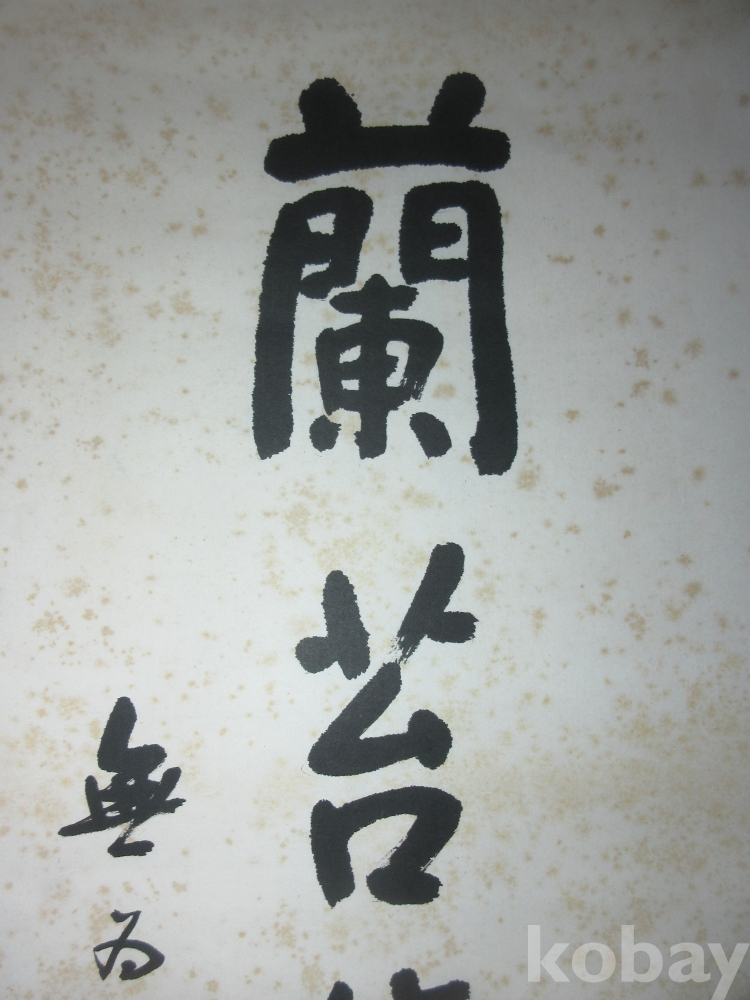 蘭苔
無為
kobay